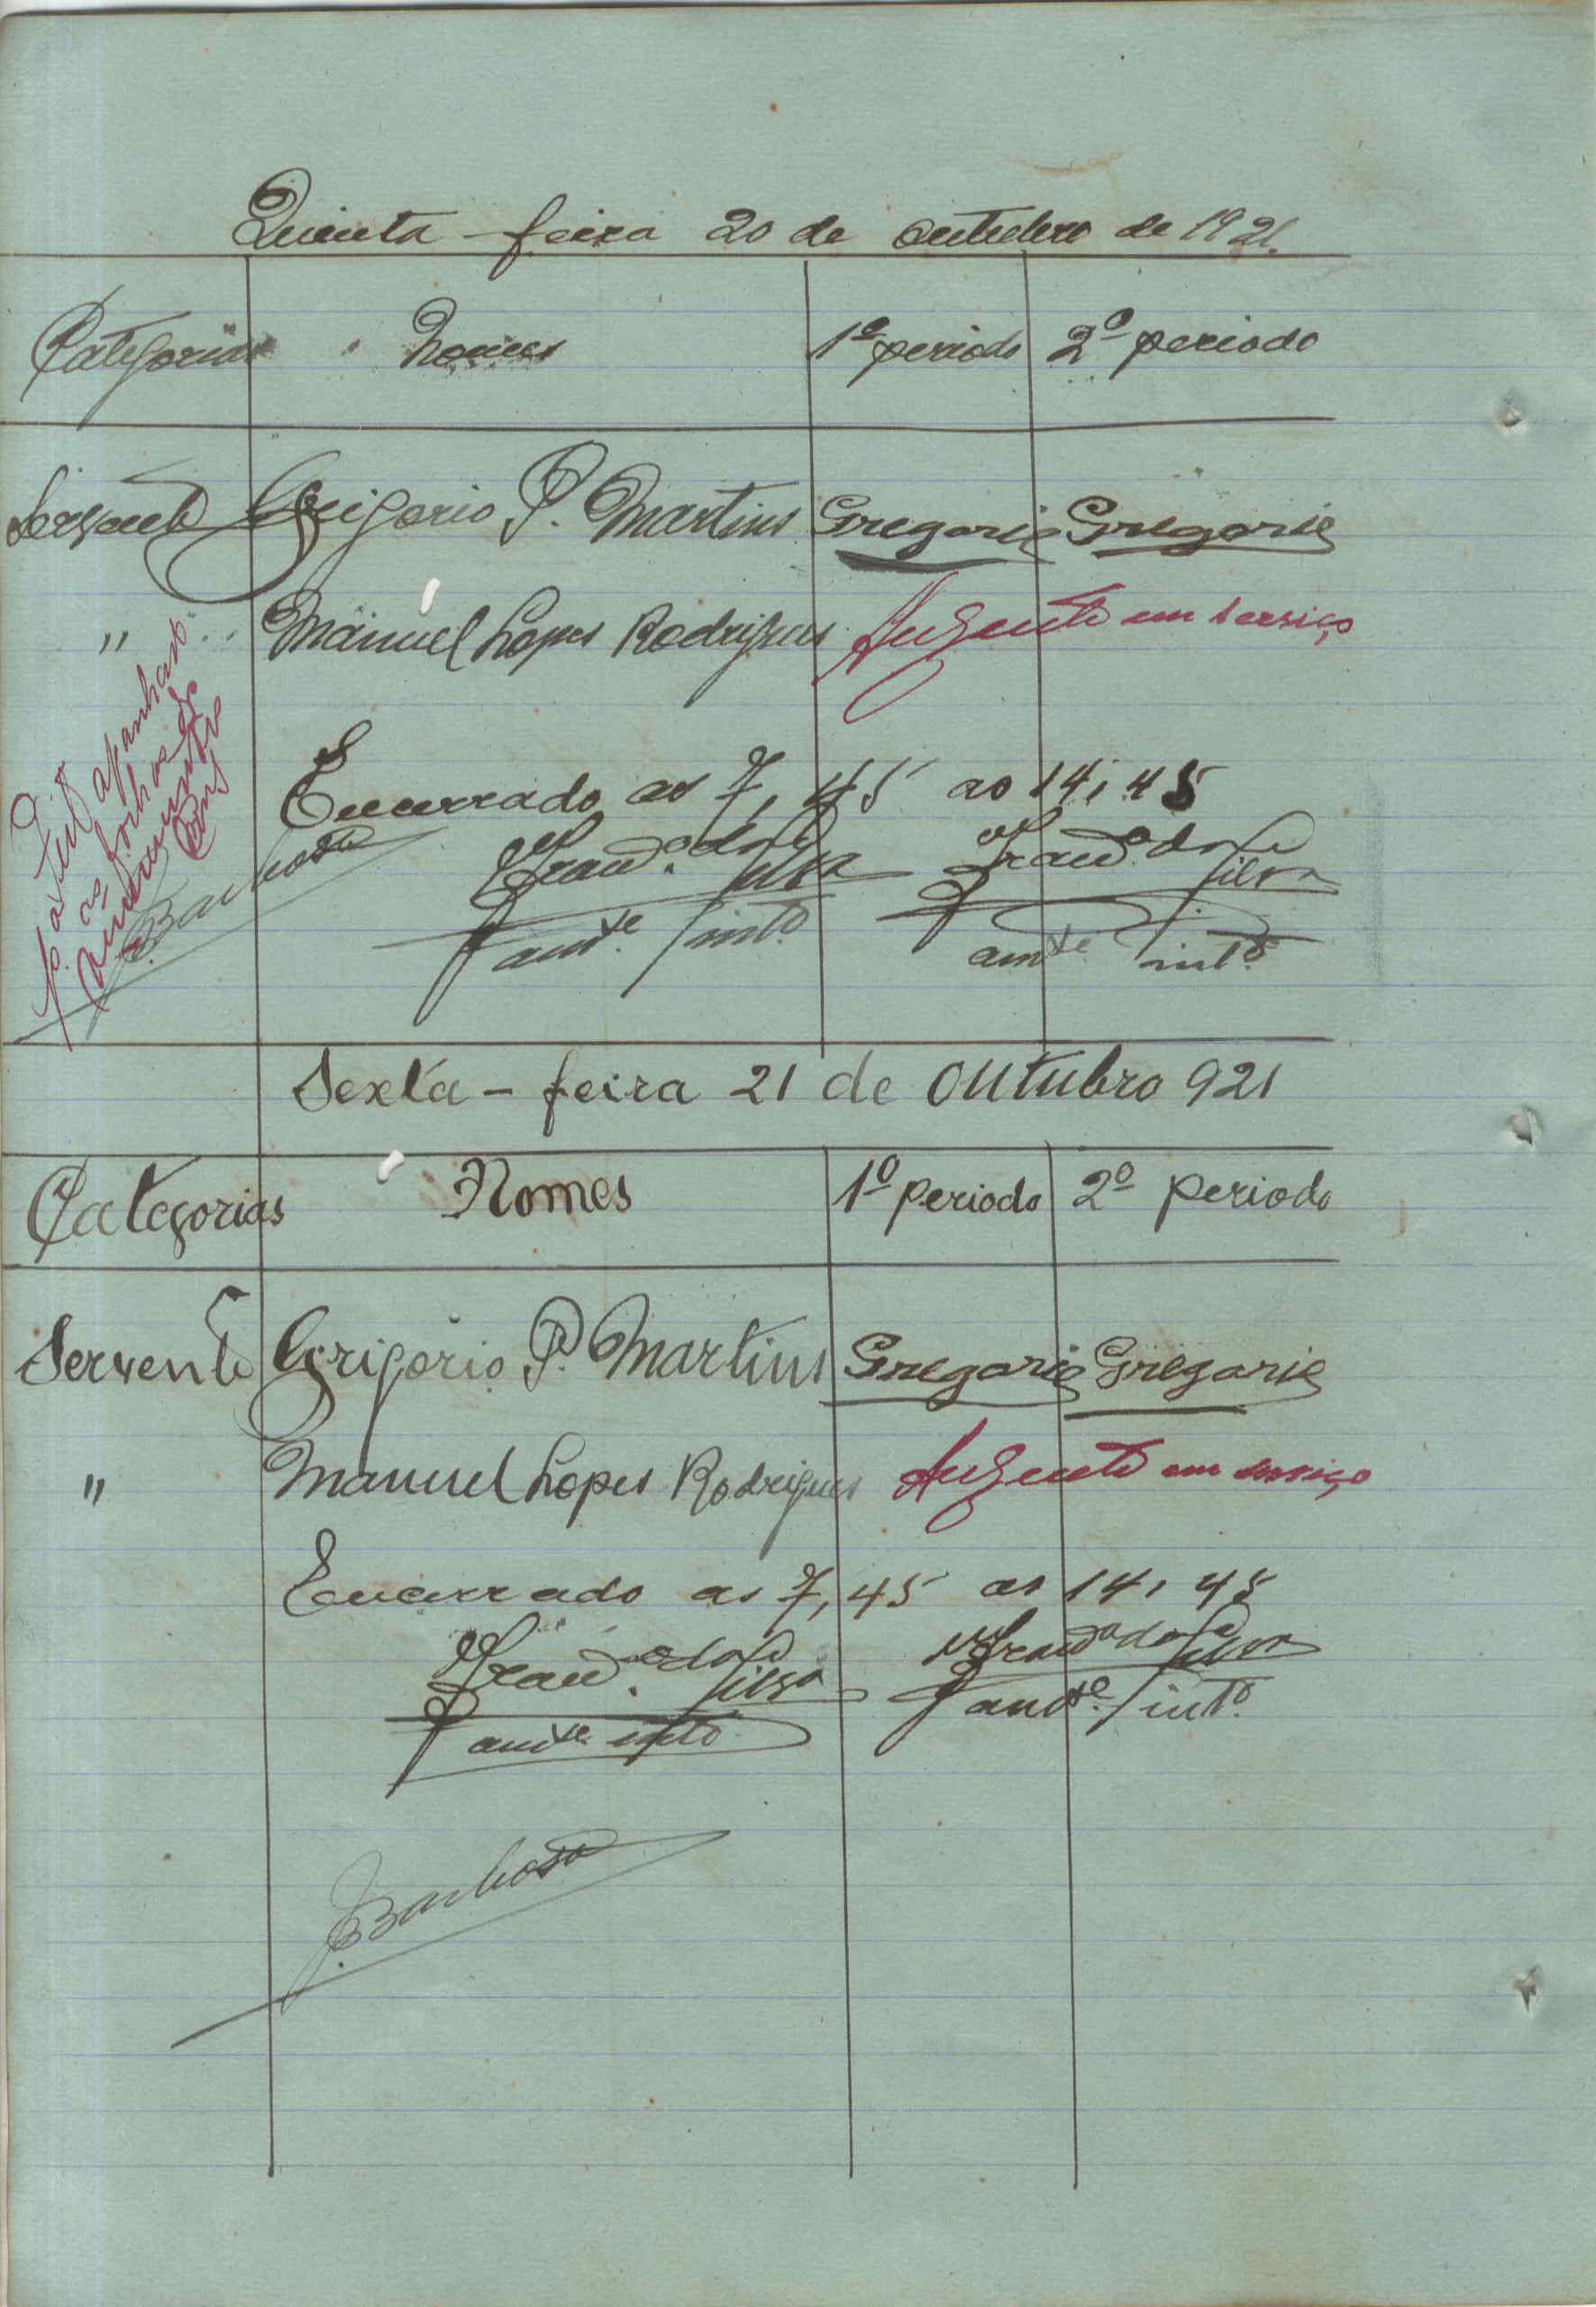 Quinta-feira 20 de outubro de 1921.
Categorias Nomes 1º periodo 2º periodo
Servente Grigorio P. Martins Gregorio Gregorio
" Manuel Lopes Rodrigues Auzente em serviço
Encerrado as 7,45 as 14,45
Franco da Silva Franco da Silva
amte. into. amte. into.
apanhar
as folhas de
Barbosa
Sexta-feira 21 de Outubro 921
Categorias Nomes 1º periodo 2º periodo
Servente Grigorio P. Martins Gregorio Gregorio
" Manuel Lopes Rodrigues Auzente em serviço
Encerrado as 7,45 as 14,45
Franco da Silva Franco da Silva
amte into. amte. into.
Barbosa